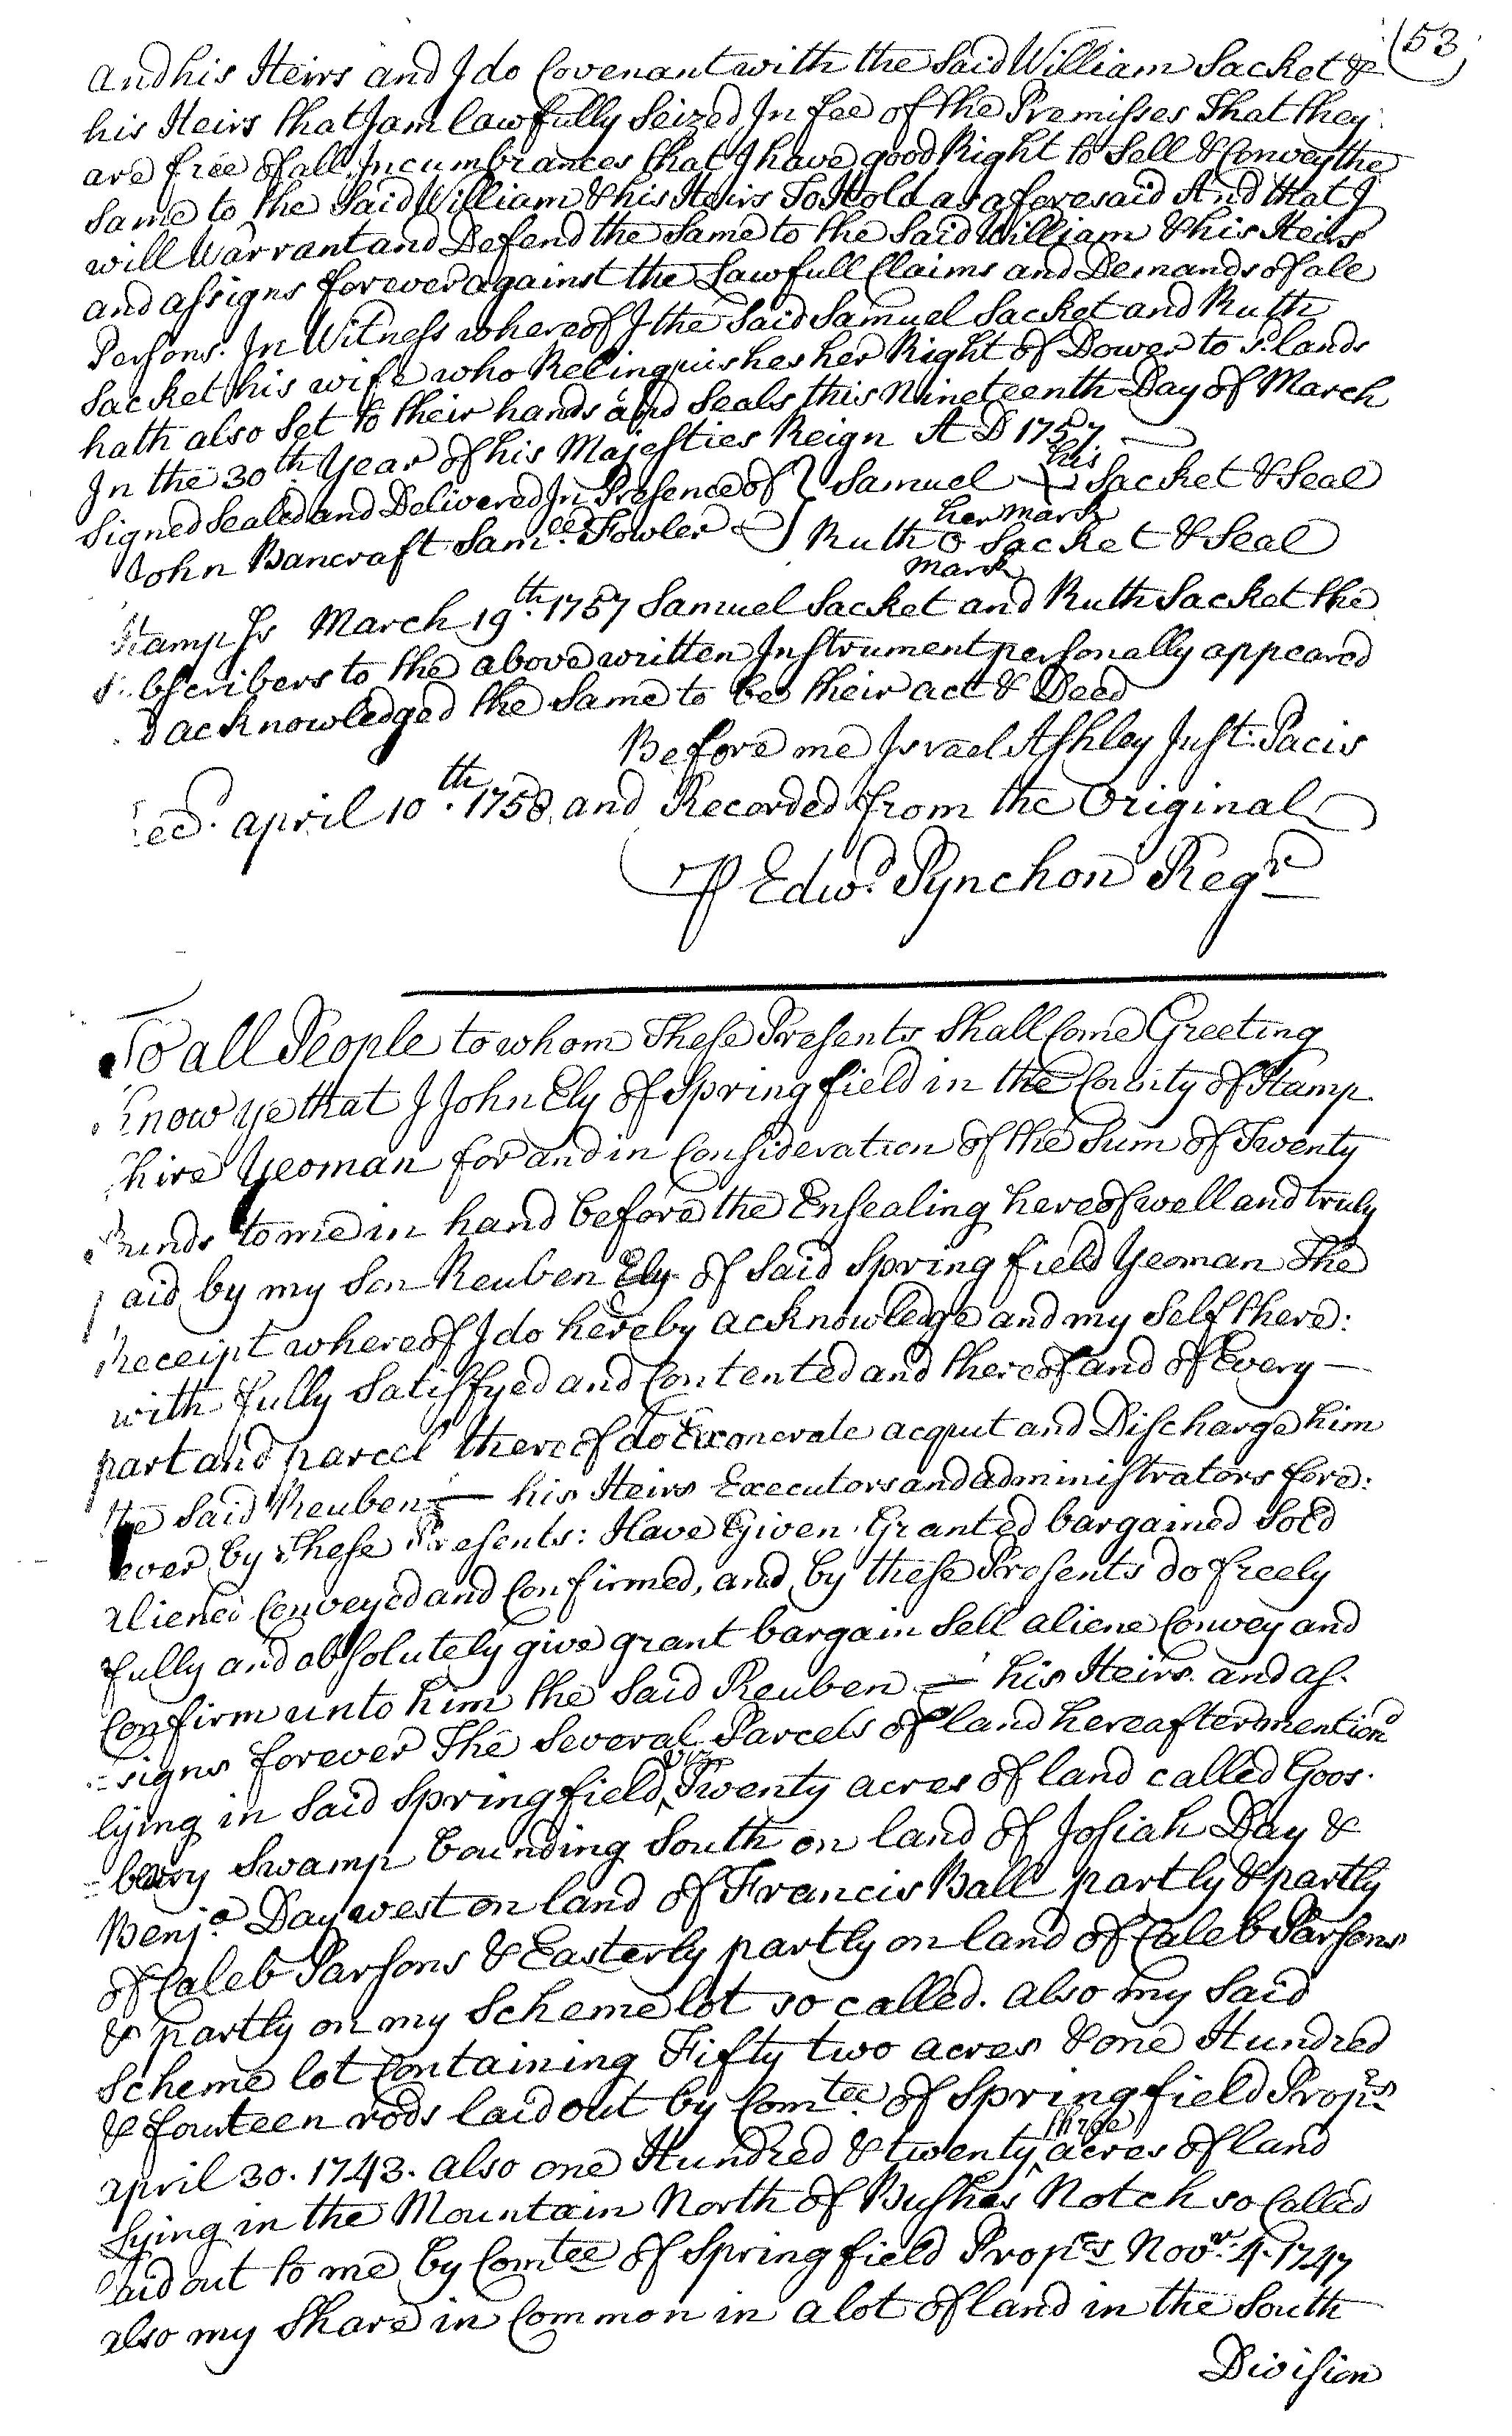 53
and his Heirs and I do Covenant with the Said William Sacket &
his Heirs that I am lawfully Seized In fee of the Premisses That they
are free of all Incumbrances that I have good Right to Sell & Convey the
Same to the Said William & his Heirs To Hold as aforesaid And that I
will Warrant and Defend the Same to the Said William & his Heirs
and assigns forever against the Lawfull Claims and Demands of all
Persons. In Witness whereof I the Said Samuel Sacket and Ruth
Sacket his wife who Relinquishes her Right of Dower to sd. lands
hath also Set to their hands and Seals this Nineteenth Day of March
In the 30th Year of his Majesties Reign A D 1757.
Signed Sealed and Delivered In Presence of } Samuel his Sacket & Seal
mark
John Bancraft Samll. Fowler } Ruth her O Sacket & Seal
mark
Hamp Ss March 19th. 1757 Samuel Sacket and Ruth Sacket the
bscribers to the above written Instrument personally appeared
d acknowledged the Same to be their act & Deed
Before me Israel Ashley Just. Pacis
ecd. april 10th. 1758 and Recorded from the Original
P Edwd. Pynchon Regr
To all People to whom These Presents Shall Come Greeting
Know ye that I John Ely of Springfield in the County of Hamp
hire Yeoman for and in Consideration of the Sum of Twenty
unds to me in hand before the Ensealing hereof well and truly
paid by my Son Reuben Ely of Said Springfield Yeoman The
Receipt whereof I do hereby acknowledge and my Self there:
with fully Satisfyed and Contented and thereof and of Every —
part and parcel thereof do Exonerate acquit and Discharge him
the Said Reuben — his Heirs Executors and administrators fore:
ever by these Presents: Have Given Granted bargained Sold
aliened Conveyed and Confirmed, and by these Presents do freely
fully and absolutely give grant bargain Sell aliene Convey and
Confirm unto him the Said Reuben — his Heirs and as-
=signs forever The Several Parcels of land hereafter mentiond
lying in Said Springfield, viz Twenty acres of land called Goos-
=berry Swamp bounding South on land of Josiah Day &
Benja. Day west on land of Francis Ball partly & partly
of Caleb Parsons & Easterly partly on land of Caleb Parsons
& partly on my Scheme lot so called. also my Said
Scheme lot Containing Fifty two acres & one Hundred
& fourteen rods laid out by Comtee of Springfield Proprs
april 30. 1743. also one Hundred & twenty three acres of land
Lying in the Mountain North of Bushes Notch so Called
laid out to me by Comtee of Springfield Proprs Novr. 4. 1747
also my Share in Common in a lot of land in the South
Division